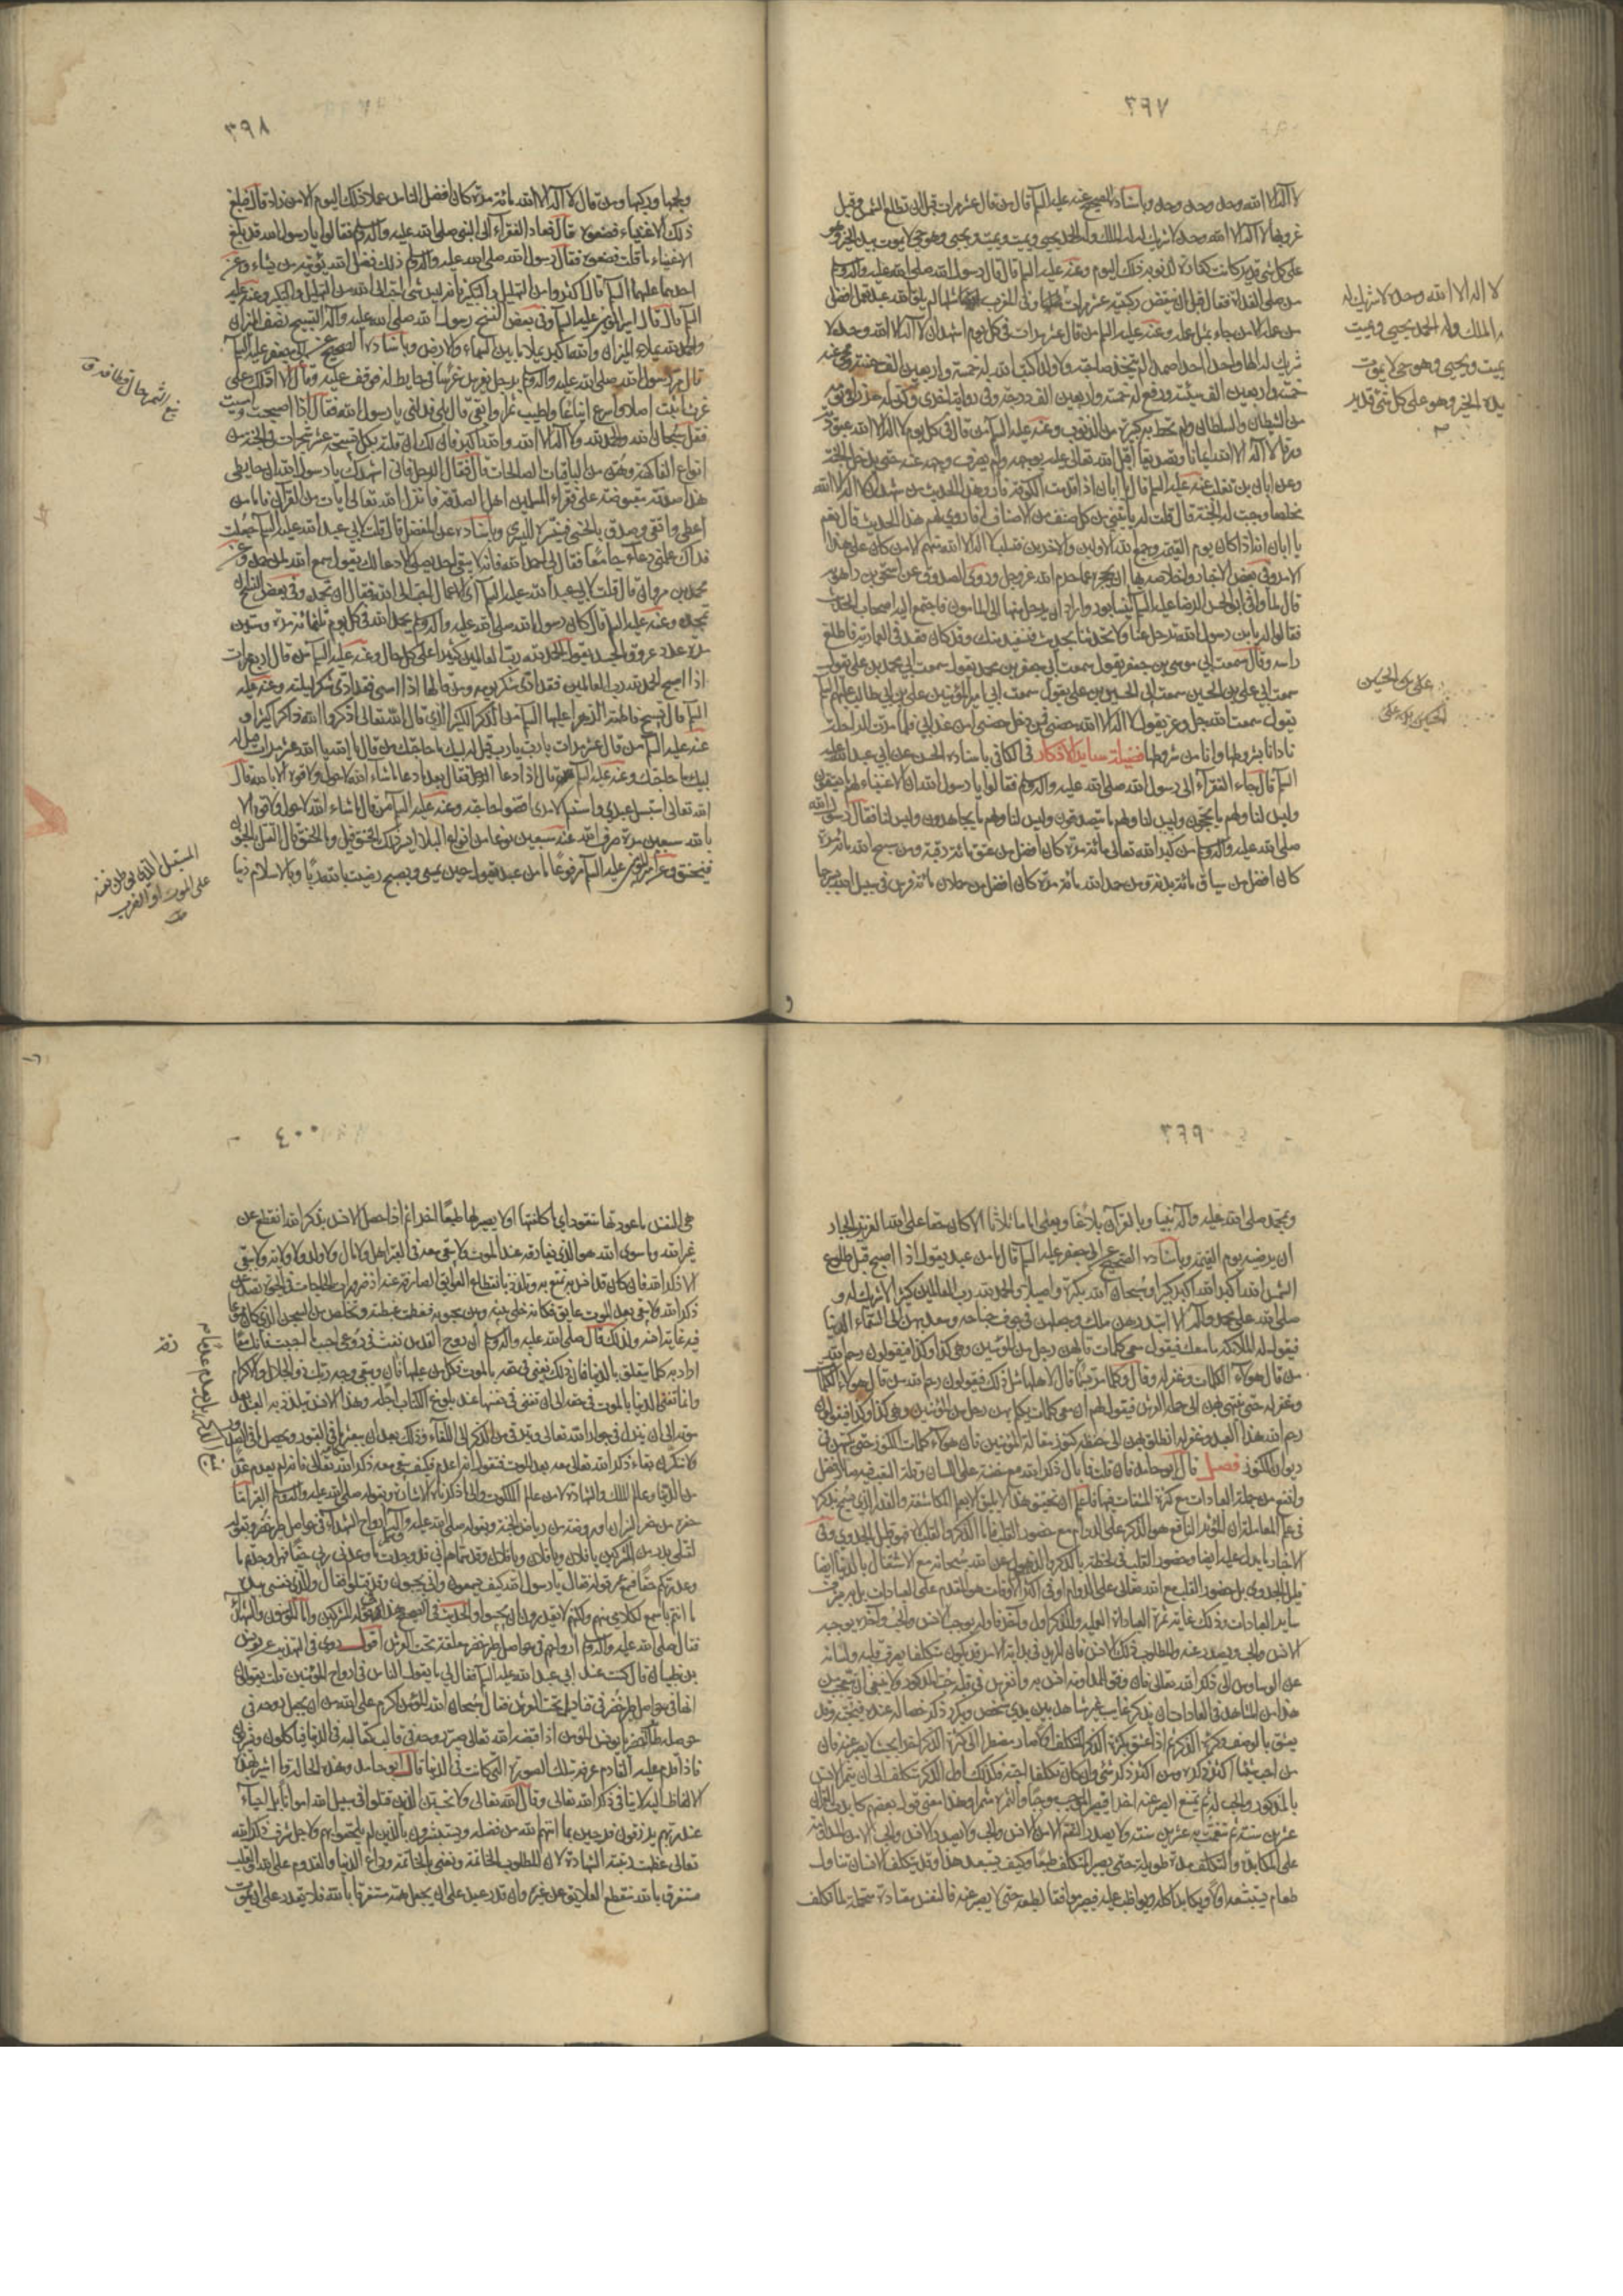 ٣٩٧
لا اله الا الله وحده وحده وحده وباسناده الصحيح عنه عليه السلم قال من قال عشر مرات قبل ان تطلع الشمس وقبل
غروبها لا اله الا الله وحده لا شريك له له الملك وله الحمد يحيي ويميت ويميت ويحيي وهو حي لا يموت بيده الخير وهو
على كل شي قدير كانت كفارة لذنوبه ذلك اليوم وعنه عليه السلم قال قال رسول الله صلى الله عليه واله وسلم
من صلى الغداة فقال قبل ان ينقض ركبتيه عشر مرات وفي المغرب مثلها لم يلق الله عبد بعمل افضل
من عمله الا من جاء بمثل عمله وعنه عليه السلم من قال عشر مرات في كل يوم اشهد ان لا اله الا الله وحده لا
شريك له الها واحدا احدا صمدا لم يتخذ صاحبة ولا ولدا كتب الله له خمسة واربعين الف حسنة ومحى عنه
خمسة واربعين الف سيئة ورفع له خمسة واربعين الف درجة وفي رواية اخرى وكن له حرزا في يومه
من الشيطان والسلطان ولم تحط به كبيرة من الذنوب وعنه عليه السلم من قال في كل يوم لا اله الا الله عبودية
ورقا لا اله الا الله ايمانا وتصديقا اقبل الله تعالى عليه بوجهه ولم يصرف وجهه عنه حتى يدخل الجنة
وعن ابان بن تغلب عنه عليه السلم قال يا ابان اذا قدمت الكوفة فارو هذا الحديث من شهد ان لا اله الا الله
مخلصا وجبت له الجنة قال قلت له ياتيني من كل صنف من الاصناف افاروي لهم هذا الحديث قال نعم
يا ابان انه اذا كان يوم القيمة وجمع الله الاولين والاخرين فتسلب لا اله الا الله منهم الا من كان على هذا
الامر وفي بعض الاخبار واخلاصه بها ان يحجزه عما حرم الله عز وجل وروى الصدوق عن اسحق بن راهويه
قال لما وافى ابو الحسن الرضا عليه السلم نيسابور واراد ان يرحل منها الى المامون فاجتمع اليه اصحاب الحديث
فقالوا له يا بن رسول الله ترحل عنا ولا تحدثنا بحديث فنستفيده منك وقد كان قعد في العمارية فاطلع
راسه وقال سمعت ابي موسى بن جعفر يقول سمعت ابي جعفر بن محمد يقول سمعت ابي محمد بن علي يقول
سمعت ابي علي بن الحسين سمعت ابي الحسين بن علي يقول سمعت ابي امير المؤمنين علي بن ابي طالب عليهم السلم
يقول سمعت الله جل وعز يقول لا اله الا الله حصني فمن دخل حصني امن عذابي فلما مرت الراحلة
نادانا بشروطها وانا من شروطها فضيلة ساير الاذكار في الكافي باسناده الحسن عن ابي عبد الله عليه
السلم قال جاء الفقراء الى رسول الله صلى الله عليه واله وسلم فقالوا يا رسول الله ان الاغنياء لهم ما يعتقون
وليس لنا ولهم ما يحجون وليس لنا ولهم ما يتصدقون وليس لنا ولهم ما يجاهدون وليس لنا فقال رسول الله
صلى الله عليه واله وسلم من كبر الله تعالى مائة مرة كان افضل من عتق مائة رقبة ومن سبح الله مائة مرة
كان افضل من سياق مائة بدنة ومن حمد الله مائة مرة كان افضل من حملان مائة فرس في سبيل الله بسرجها
لا اله الا الله وحده لا شريك له
له الملك وله الحمد يحيي ويميت
يميت ويحيي وهو حي لا يموت
بيده الخير وهو على كل شي قدير
علي بن الحسين
الحسين بن علي
٣٩٨
ولجمها وركبها ومن قال لا اله الا الله مائة مرة كان افضل الناس عملا ذلك اليوم الا من زاد قال فبلغ
ذلك الاغنياء فصنعوه قال فعاد الفقراء الى النبي صلى الله عليه واله وسلم فقالوا يا رسول الله قد بلغ
الاغنياء ما قلت فصنعوه فقال رسول الله صلى الله عليه واله وسلم ذلك فضل الله يؤتيه من يشاء وعن
احدهما عليهما السلم قال اكثروا من التهليل والتكبير فانه ليس شي احب الى الله من التهليل والتكبير وعنه عليه
السلم قال قال امير المؤمنين عليه السلم وفي بعض النسخ رسول الله صلى الله عليه واله التسبيح نصف الميزان
والحمد لله يملاء الميزان والله اكبر يملا ما بين السماء والارض وباسناده الصحيح عن ابي جعفر عليه السلم
قال مر رسول الله صلى الله عليه واله وسلم برجل يغرس غرسا في حايط له فوقف عليه وقال الا ادلك على
غرس اثبت اصلا واسرع ايناعا واطيب ثمرا وابقى قال بلى فدلني يا رسول الله فقال اذا اصبحت وامسيت
فقل سبحان الله والحمد لله ولا اله الا الله والله اكبر فان لك ان قلته بكل تسبيحة عشر شجرات في الجنة من
انواع الفاكهة وهن من الباقيات الصالحات قال فقال الرجل فاني اشهدك يا رسول الله ان حايطي
هذا صدقة مقبوضة على فقراء المسلمين اهل الصدقة فانزل الله تعالى ايات من القرآن فاما من
اعطى واتقى وصدق بالحسنى فسنيسره لليسرى وباسناده عن المفضل قال قلت لابي عبد الله عليه السلم جعلت
فداك علمني دعاء جامعا فقال لي احمد الله فانه لا يبقى احد يصلي الا دعا لك يقول سمع الله لمن حمده وعن
محمد بن مروان قال قلت لابي عبد الله عليه السلم اي الاعمال احب الى الله فقال ان تحمده وفي بعض النسخ ان
تمجده وعنه عليه السلم قال كان رسول الله صلى الله عليه واله وسلم يحمد الله في كل يوم ثلثمائة مرة وستين
مرة عدد عروق الجسد يقول الحمد لله رب العالمين كثيرا على كل حال وعنه عليه السلم من قال اربع مرات
اذا اصبح الحمد لله رب العالمين فقد ادى شكر يومه ومن قالها اذا امسى فقد ادى شكر ليلته وعنه عليه
السلم قال تسبيح فاطمة الزهرا عليها السلم من الذكر الكثير الذي قال الله تعالى اذكروا الله ذكرا كثيرا و
عنه عليه السلم من قال عشر مرات يا رب يا رب قيل له لبيك ما حاجتك من قال يا الله يا الله عشر مرات قيل له
لبيك ما حاجتك وعنه عليه السلم قال اذا دعا الرجل فقال بعد ما دعا ما شاء الله لا حول ولا قوة الا بالله قال
الله تعالى استبسل عبدي واستسلم لامري اقضوا حاجته وعنه عليه السلم من قال ما شاء الله لا حول ولا قوة الا
بالله سبعين مرة صرف الله عنه سبعين نوعا من انواع البلاء ايسر ذلك الخنق قيل وما الخنق قال لا يعتل بالجنون
فيخنق وعن امير المؤمنين عليه السلم مرفوعا ما من عبد يقول حين يمسي ويصبح رضيت بالله ربا وبالاسلام دينا
المستبسل الذي يوطن نفسه
على الموت او الضرب
٣٩٩
وبمحمد صلى الله عليه واله نبيا وبالقرآن بلاغا وبعلي اماما ثلاثا الا كان حقا على الله العزيز الجبار
ان يرضيه يوم القيمة وباسناده الصحيح عن ابي جعفر عليه السلم قال ما من عبد يقول اذا اصبح قبل طلوع
الشمس الله اكبر الله اكبر كبيرا وسبحان الله بكرة واصيلا والحمد لله رب العالمين كثيرا لا شريك له و
صلى الله على محمد واله الا ابتدرهن ملك وجعلهن في جوف جناحه وصعد بهن الى السماء الدنيا
فيقول له الملائكة ما معك فيقول معي كلمات قالهن رجل من المؤمنين وهي كذا وكذا فيقولون رحم الله
من قال هؤلاء الكلمات وغفر له وقال وكلما مر بسماء قال لاهلها مثل ذلك فيقولون رحم الله من قال هؤلاء الكلمات
وغفر له حتى ينتهي بهن الى حملة العرش فيقول لهم ان معي كلمات تكلم بهن رجل من المؤمنين وهي كذا وكذا فيقولون
رحم الله هذا العبد وغفر له انطلق بهن الى حفظة كنوز مقالة المؤمنين فان هؤلاء كلمات الكنوز حتى تكتبهن في
ديوان الكنوز فصل قال ابو حامد فان قلت فما بال ذكر الله مع خفته على اللسان وقلة التعب فيه صار افضل
وانفع من جملة العبادات مع كثرة المشقات فيها فاعلم ان تحقيق هذا لا يليق الا بعلم المكاشفة والقدر الذي يسمح بذكره
في علم المعاملة ان المؤثر النافع هو الذكر على الدوام مع حضور القلب فاما الذكر والقلب لاه فهو قليل الجدوى وفي
الاخبار ما يدل عليه ايضا وحضور القلب في لحظة بالذكر والذهول عن الله سبحانه مع الاشتغال بالدنيا ايضا
قليل الجدوى بل حضور القلب مع الله تعالى على الدوام او في اكثر الاوقات هو المقدم على العبادات بل به يشرف
ساير العبادات وذلك غاية ثمرة العبادات العملية وللذكر اول وآخر فاوله يوجب الانس والحب وآخره يوجبه
الانس والحب ويصدر عنه والمطلوب ذلك الانس فان المريد في بداية الامر قد يكون متكلفا بصرف قلبه ولسانه
عن الوسواس الى ذكر الله تعالى فان وفق للمداومة انس به وانغرس في قلبه حب المذكور ولا ينبغي ان يتعجب من
هذا فمن المشاهد في العادات ان يذكر غايب غير مشاهد بين يدي شخص ويكرر ذكر خصاله عنده فيحبه وقد
يعشق بالوصف وكثرة الذكر ثم اذا عشق بكثرة الذكر المتكلف اولا صار مضطرا الى كثرة الذكر اخرا بحيث لا يصبر عنه فان
من احب شيئا اكثر ذكره ومن اكثر ذكر شي وان كان تكلفا احبه فكذلك اول الذكر متكلف الى ان يثمر الانس
بالمذكور والحب له ثم يمتنع الصبر عنه اخرا فيصير الموجب موجبا والثمر مثمرا وهذا معنى قول بعضهم كابدت القرآن
عشرين سنة ثم تنعمت به عشرين سنة ولا يصدر التنعم الا من الانس والحب ولا يصدر الانس والحب الا من المداومة
على المكابدة والتكلف مدة طويلة حتى يصير التكلف طبعا وكيف يستبعد هذا وقد يتكلف الانسان تناول
طعام يستبشعه اولا ويكابد اكله ويواظب عليه فيصير موافقا لطبعه حتى لا يصبر عنه فالنفس معتادة متحملة لما تتكلف
٤٠٠
هي النفس ما عودتها تتعود اي ما كلفتها اولا يصير لها طبعا اخرا ثم اذا حصل الانس بذكر الله انقطع عن
غير الله وما سوى الله هو الذي يفارقه عند الموت فلا يبقى معه في القبر اهل ولا مال ولا ولد ولا ولاية ولا يبقى
الا ذكر الله فان كان قد انس به تمتع به وتلذذ بانقطاع العوايق الصارفة عنه اذ ضرورات الحاجات في الحيوة تصد عن
ذكر الله ولا يبقى بعد الموت عايق فكانه خلي بينه وبين محبوبه فعظمت غبطته وتخلص من السجن الذي كان ممنوعا
فيه عما به انسه ولذلك قال صلى الله عليه واله وسلم ان روح القدس نفث في روعي احبب ما احببت فانك مفارقه
اراد به كلما يتعلق بالدنيا فان ذلك يفنى في حقه بالموت فكل من عليها فان ويبقى وجه ربك ذو الجلال والاكرام
وانما تفنى الدنيا بالموت في حقه الى ان تفنى في نفسها عند بلوغ الكتاب اجله وهذا الانس يتلذذ به العبد بعد
موته الى ان ينزل في جوار الله تعالى ويترقى من الذكر الى اللقاء وذلك بعد ان يبعثر ما في القبور ويحصل ما في الصدور
ولا تنكرن بقاء ذكر الله تعالى معه بعد الموت فتقول انه اعدم فكيف يبقى معه ذكر الله تعالى فانه لم يعدم عدما
من الدنيا وعالم الملك والشهادة لا من عالم الملكوت والى ما ذكرناه الاشارة بقوله صلى الله عليه واله وسلم القبر اما
حفرة من حفر النيران او روضة من رياض الجنة وبقوله صلى الله عليه واله ارواح الشهداء في حواصل طير خضر وبقوله
لقتلى بدر من المشركين يا فلان ويا فلان ويا فلان وقد سماهم اني قد وجدت ما وعدني ربي حقا فهل وجدتم ما
وعد ربكم حقا فسمع عمر قوله فقال يا رسول الله كيف يسمعون وانى يجيبون وقد جيفوا فقال والذي نفسي بيده
ما انتم باسمع لكلامي منهم ولكنهم لا يقدرون ان يجيبوا والحديث في الصحيح هذا قوله في المشركين واما المؤمنون والشهداء
فقال صلى الله عليه واله وسلم ارواحهم في حواصل طير خضر معلقة تحت العرش اقول روى في التهذيب عن يونس
بن ظبيان قال كنت عند ابي عبد الله عليه السلم فقال لي ما يقول الناس في ارواح المؤمنين قلت يقولون
انها في حواصل طير خضر في قناديل تحت العرش فقال سبحان الله المؤمن اكرم على الله من ان يجعل روحه في
حوصلة طائر اخضر يا يونس المؤمن اذا قبضه الله تعالى صير روحه في قالب كقالبه في الدنيا فياكلون ويشربون
فاذا قدم عليه القادم عرفه بتلك الصورة التي كانت في الدنيا قال ابو حامد وهذه الحالة وما اشير بهذه
الالفاظ اليه لا ينافي ذكر الله تعالى وقال الله تعالى ولا تحسبن الذين قتلوا في سبيل الله امواتا بل احياء
عند ربهم يرزقون فرحين بما آتيهم الله من فضله ويستبشرون بالذين لم يلحقوا بهم ولاجل شرف ذكر الله
تعالى عظمت رتبة الشهادة لان المطلوب الخاتمة ونعني بالخاتمة وداع الدنيا والقدوم على الله والقلب
مستغرق بالله منقطع العلايق عن غيره وان قدر عبد على ان يجعل همه مستغرقا بالله فلا يقدر على ان يموت